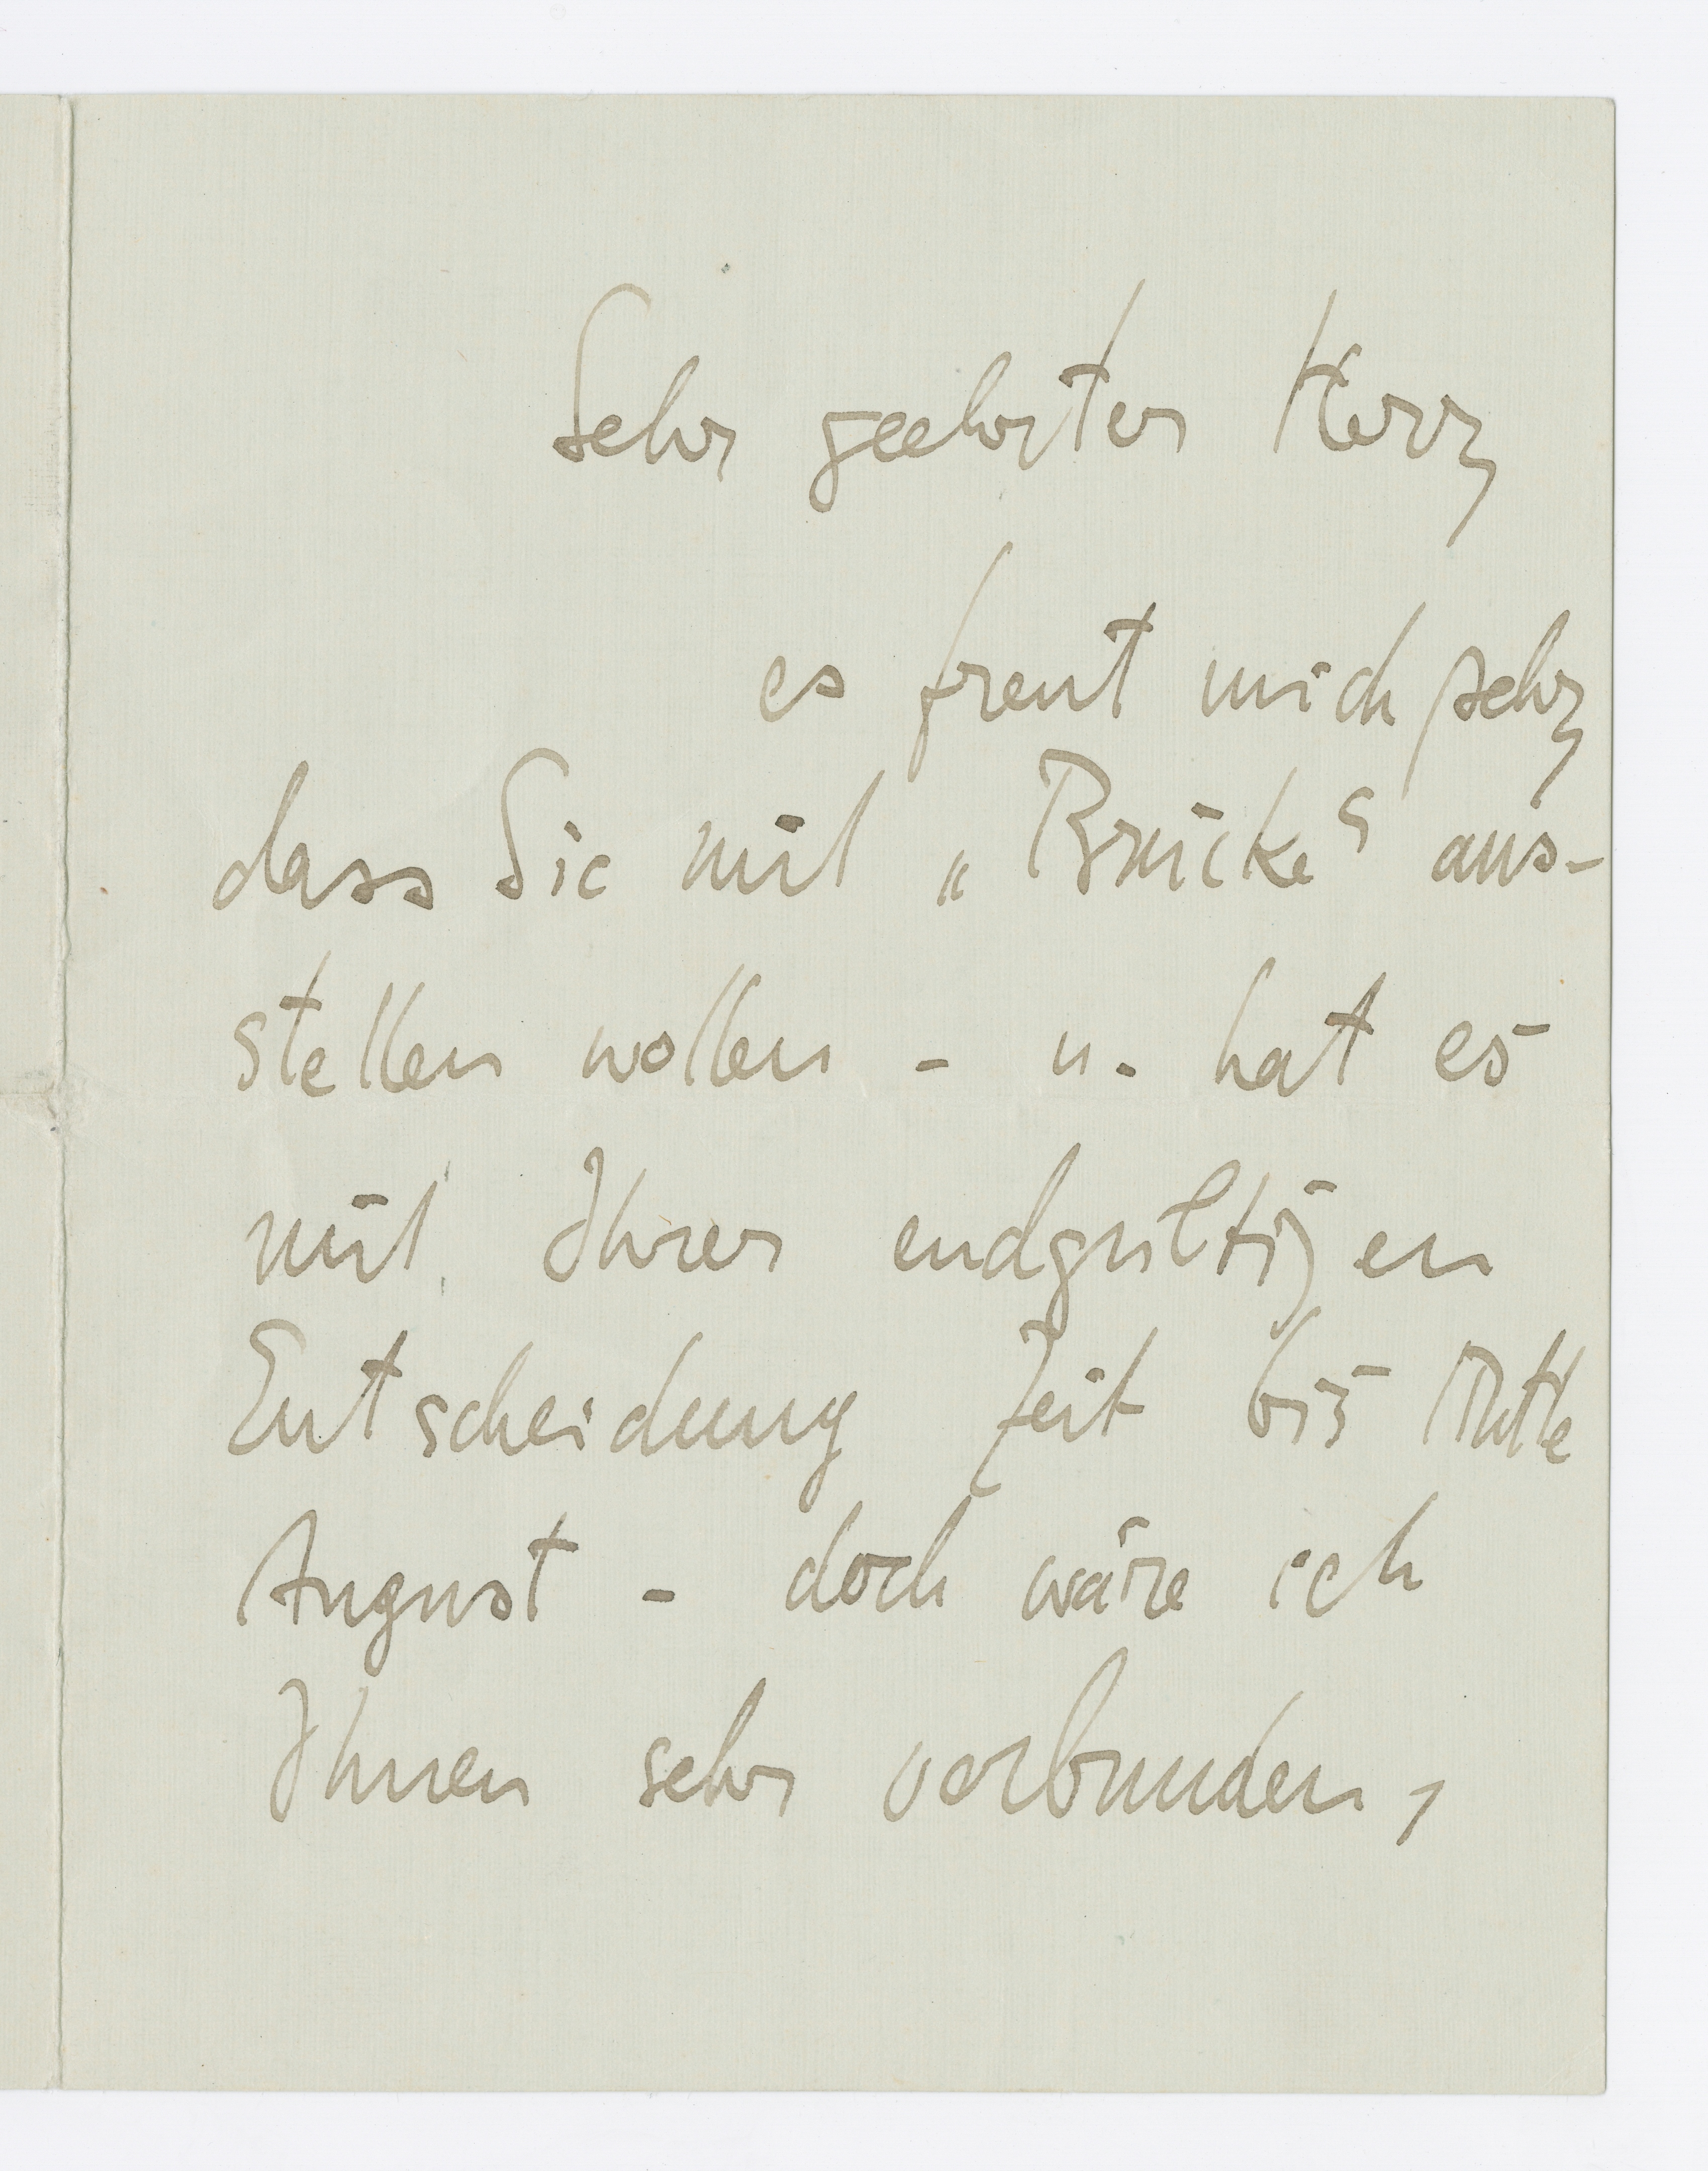 Sehr geehrter Herr,
es freut mich sehr,
dass Sie mit „Brücke“ aus-
stellen wollen - u. hat es
mit Ihrer endgültigen
Entscheidung Zeit bis Mitte
August - doch wäre ich
Ihnen sehr verbunden,